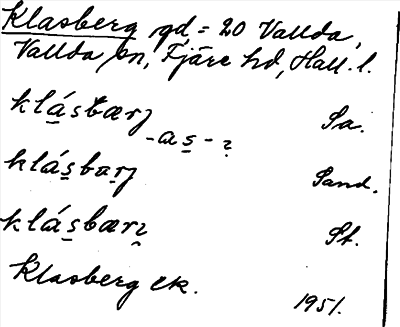 Klasberg gd = 20 Vallda,
Vallda sn, Fjäre hd, Hall. l.
klásbærj Sa.
-as-?
klásbærj Sand.
klásbærj St.
Klasberg ek.
1951.